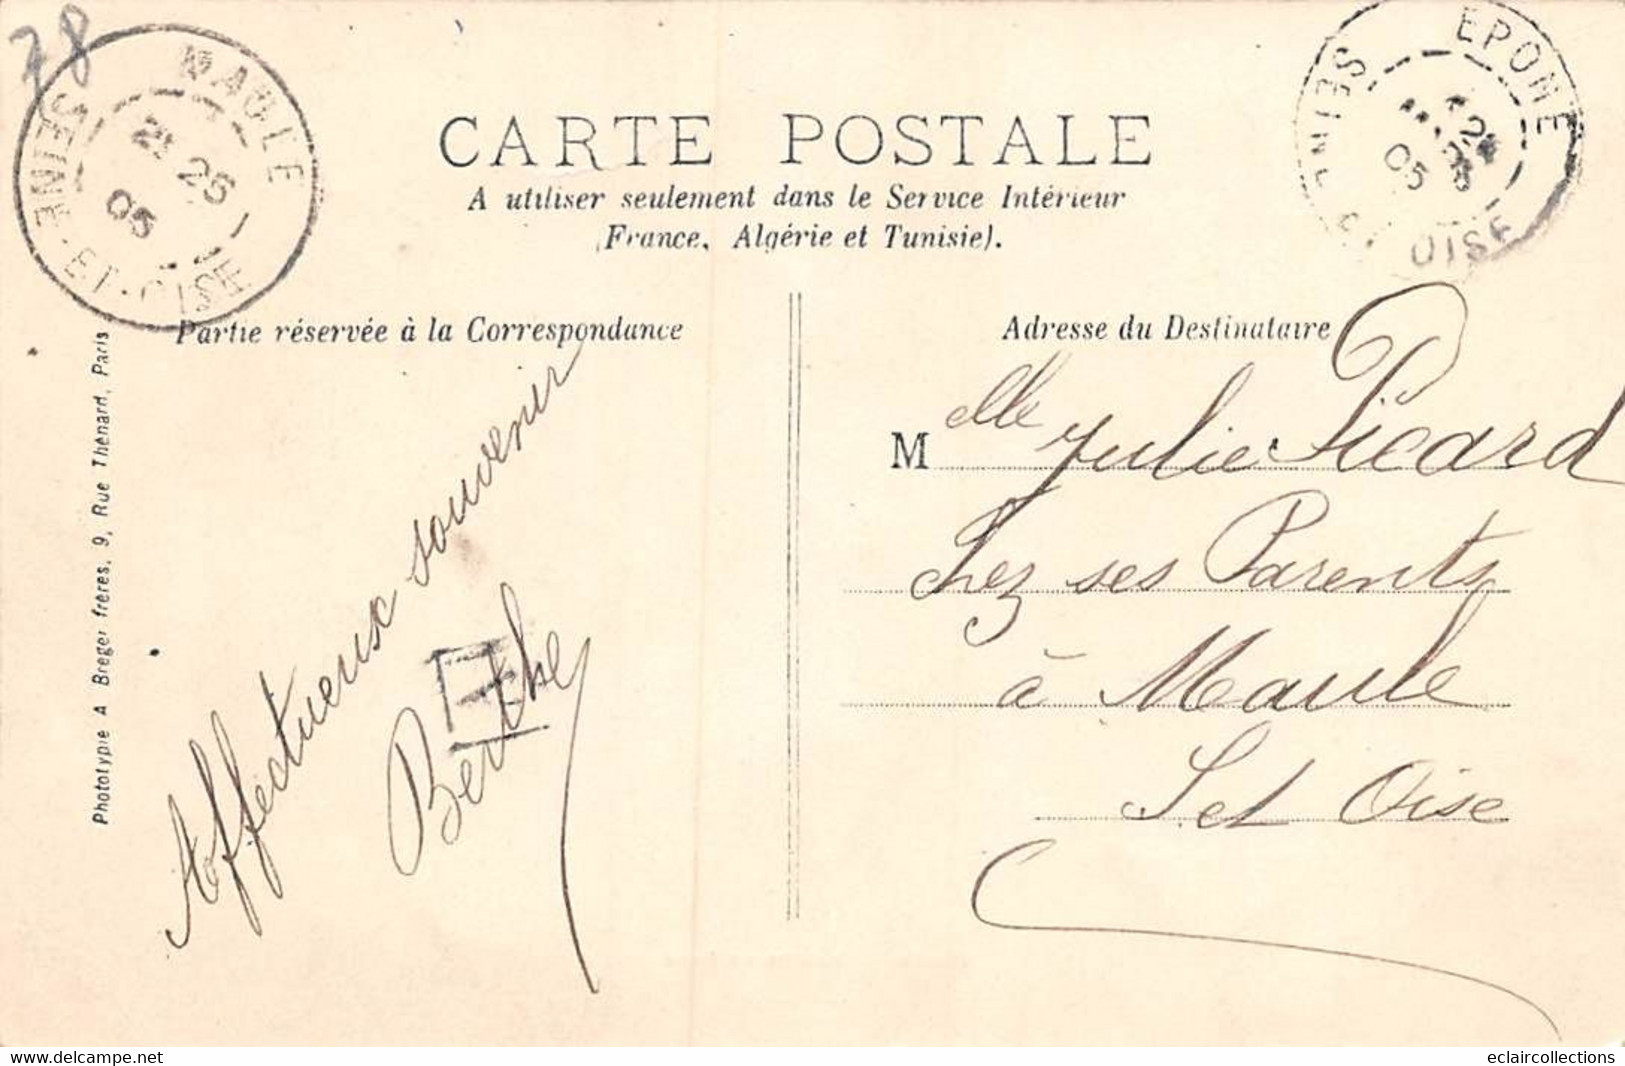 78
MAULE
25
05
SEINE-ET-OISE
EPONE
05
SEINE ET OISE
CARTE POSTALE
A utiliser seulement dans le Service Intérieur
(France, Algérie et Tunisie).
Partie réservée à la Correspondance
Adresse du Destinataire
Phototypie A Breger frères, 9, Rue Thénard, Paris
Affectueux souvenir
Berthe
E
Melle Julie Picard
Chez ses Parents
à Maule
S. et Oise
www.delcampe.net
eclaircollections